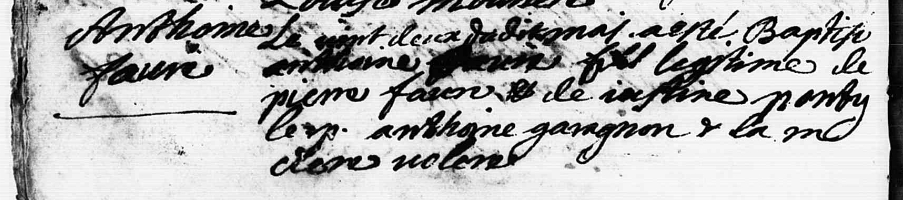 Louise mounier
Anthoine Le vint deux dudit mai a esté Baptisé
faure anthoine faure fils legitime de
pierre faure & de iustine ponty
le p. anthoine garagnon & la m
claire volere